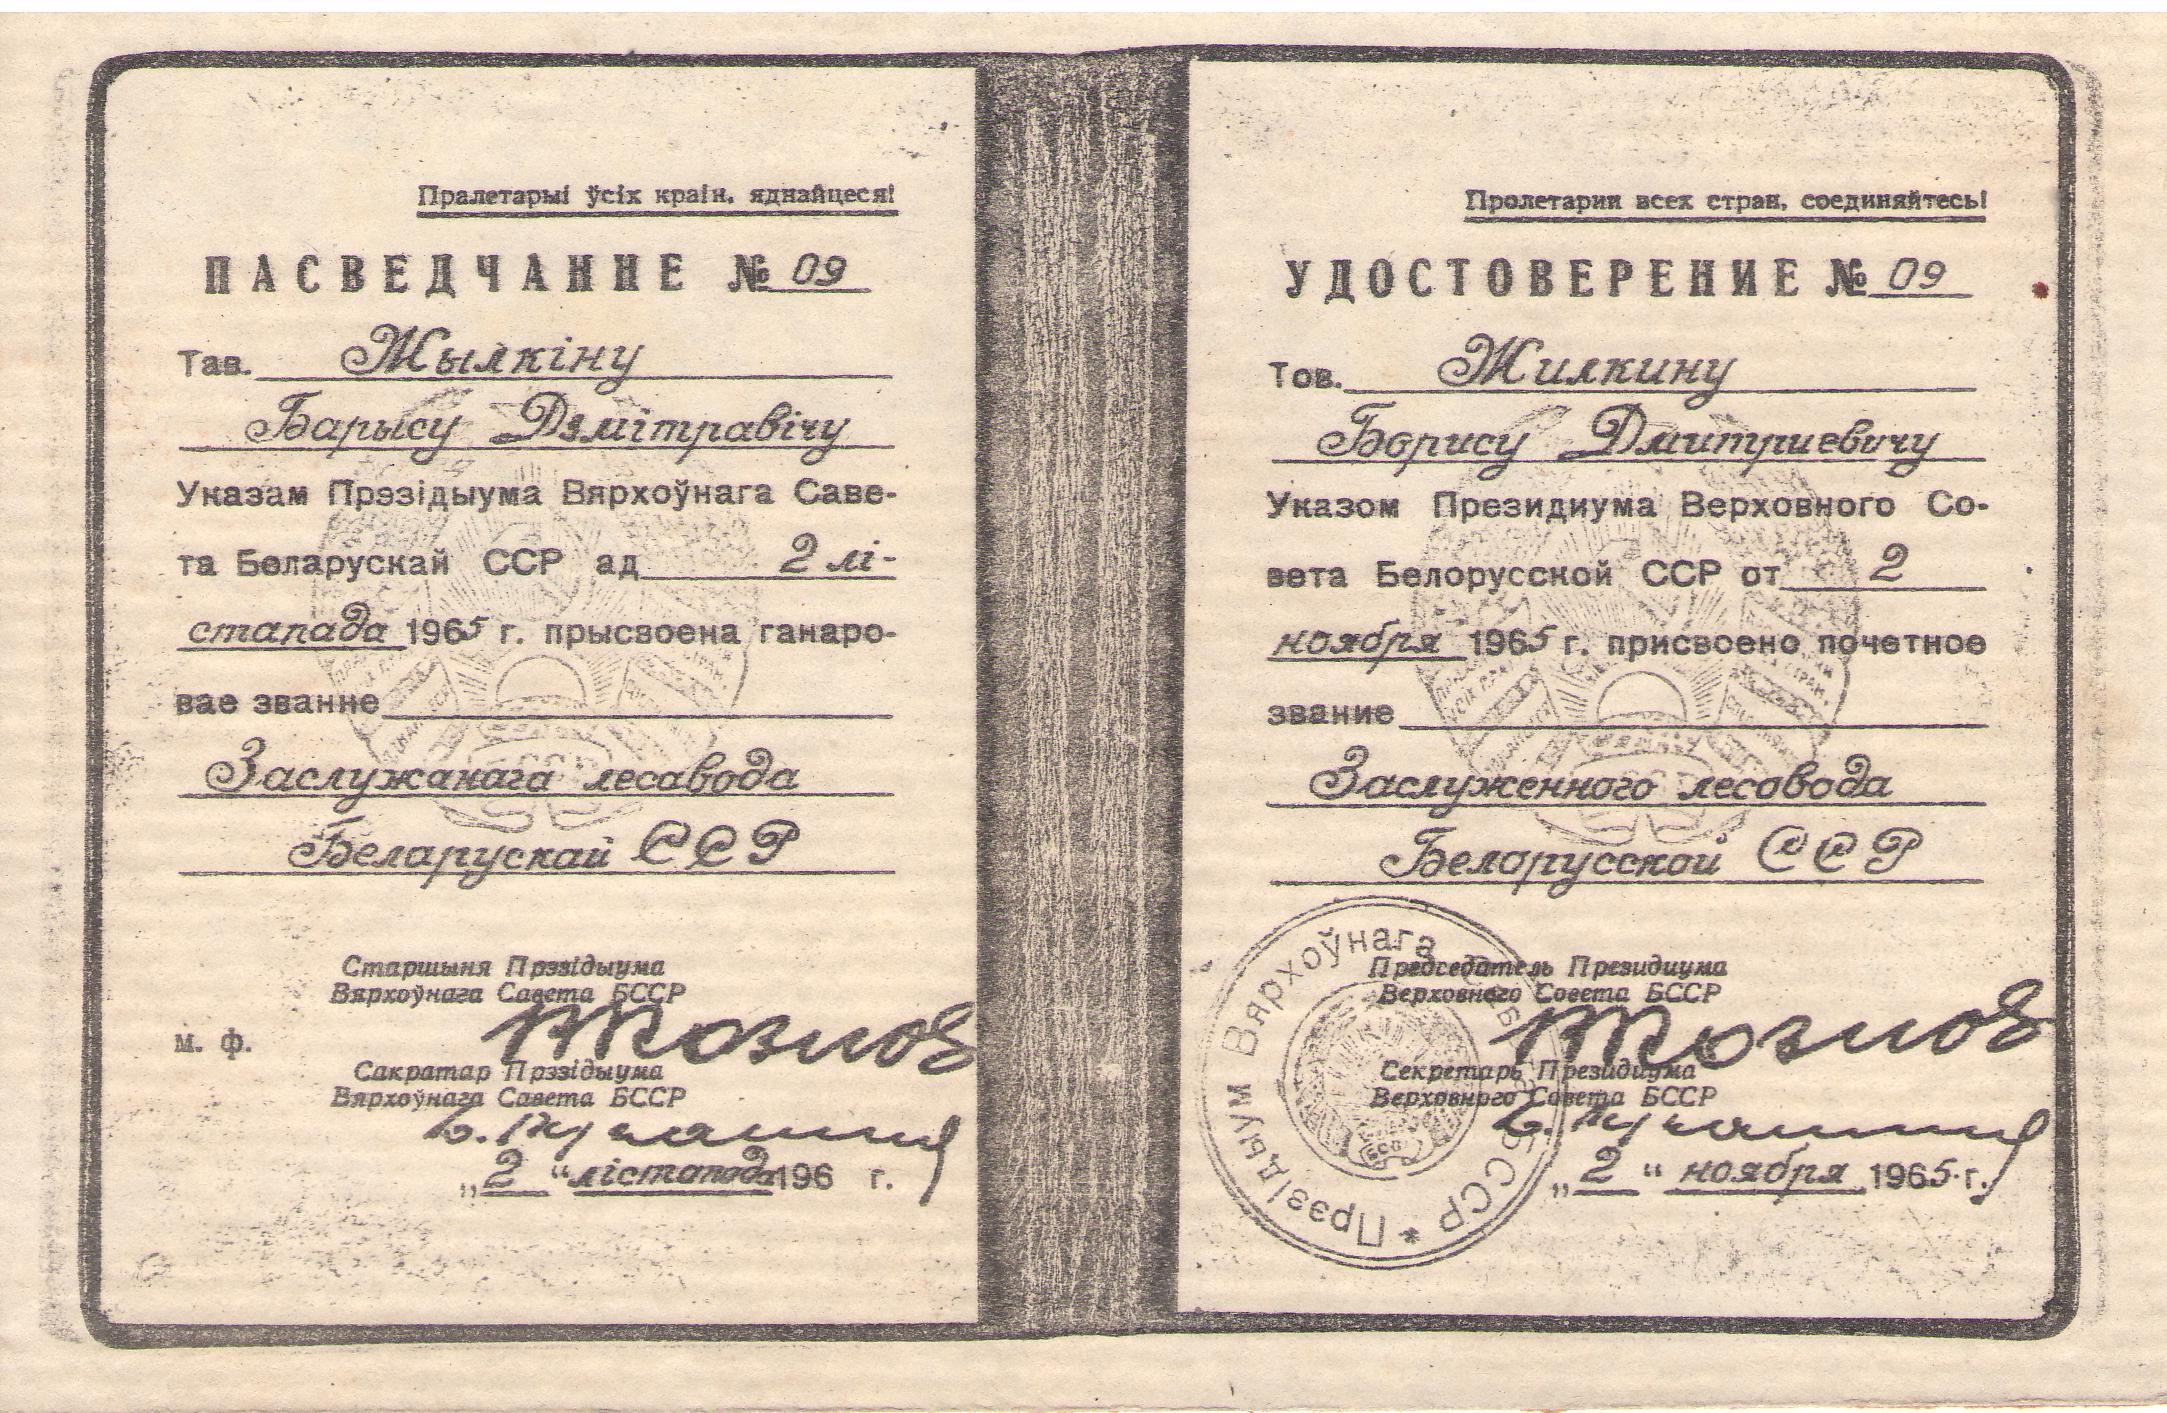 Пралетарыі ўсіх краін, яднайцеся!
ПАСВЕДЧАННЕ № 09
Тав. Жылкіну
Барысу Дзмітравічу
Указам Прэзідыума Вярхоўнага Саве-
та Беларускай ССР ад 2 лі-
стапада 1965 г. прысвоена ганаро-
вае званне
Заслужанага лесавода
Беларускай ССР
Старшыня Прэзідыума
Вярхоўнага Савета БССР
м. ф.
Сакратар Прэзідыума
Вярхоўнага Савета БССР
„2“ лістапада 196 г.
Пролетарии всех стран, соединяйтесь!
УДОСТОВЕРЕНИЕ № 09
Тов. Жилкину
Борису Дмитриевичу
Указом Президиума Верховного Со-
вета Белорусской ССР от 2
ноября 1965 г. присвоено почетное
звание
Заслуженного лесовода
Белорусской ССР
Председатель Президиума
Верховного Совета БССР
Секретарь Президиума
Верховного Совета БССР
„2“ ноября 1965 г.
Прэзідыум Вярхоўнага БССР *